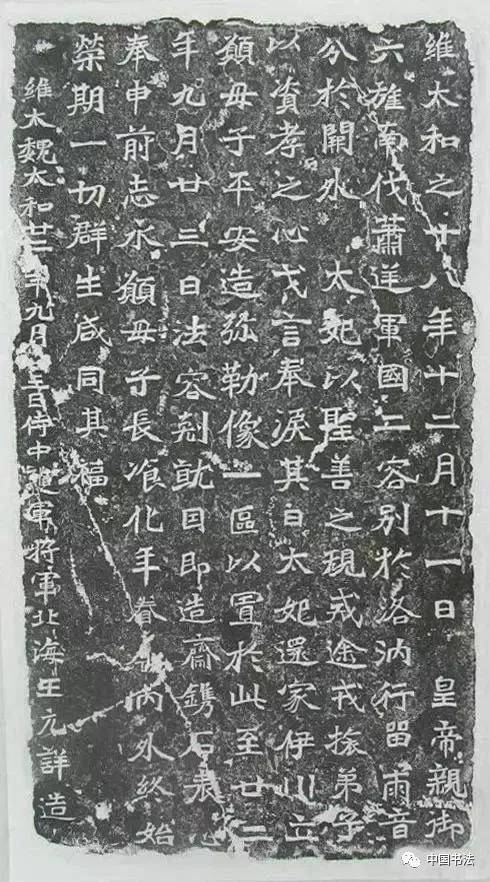 維太和之十八年十二月十一日 皇帝親御
六旌南伐蕭逆軍國二容別於洛汭行留兩音
分於闕外 太妃以聖善之規戒途戒旅弟子
以資孝之心戈言奉淚其日太妃還家伊川立
願母子平安造弥勒像一區以置於此至廿二
年九月廿三日法容剋就因即造齋鐫石表心
奉申前志永願母子長飡化年眷內外終始
榮期一切群生咸同其福
維大魏太和廿二年九月廿三日侍中護軍將軍北海王元詳造
中国书法